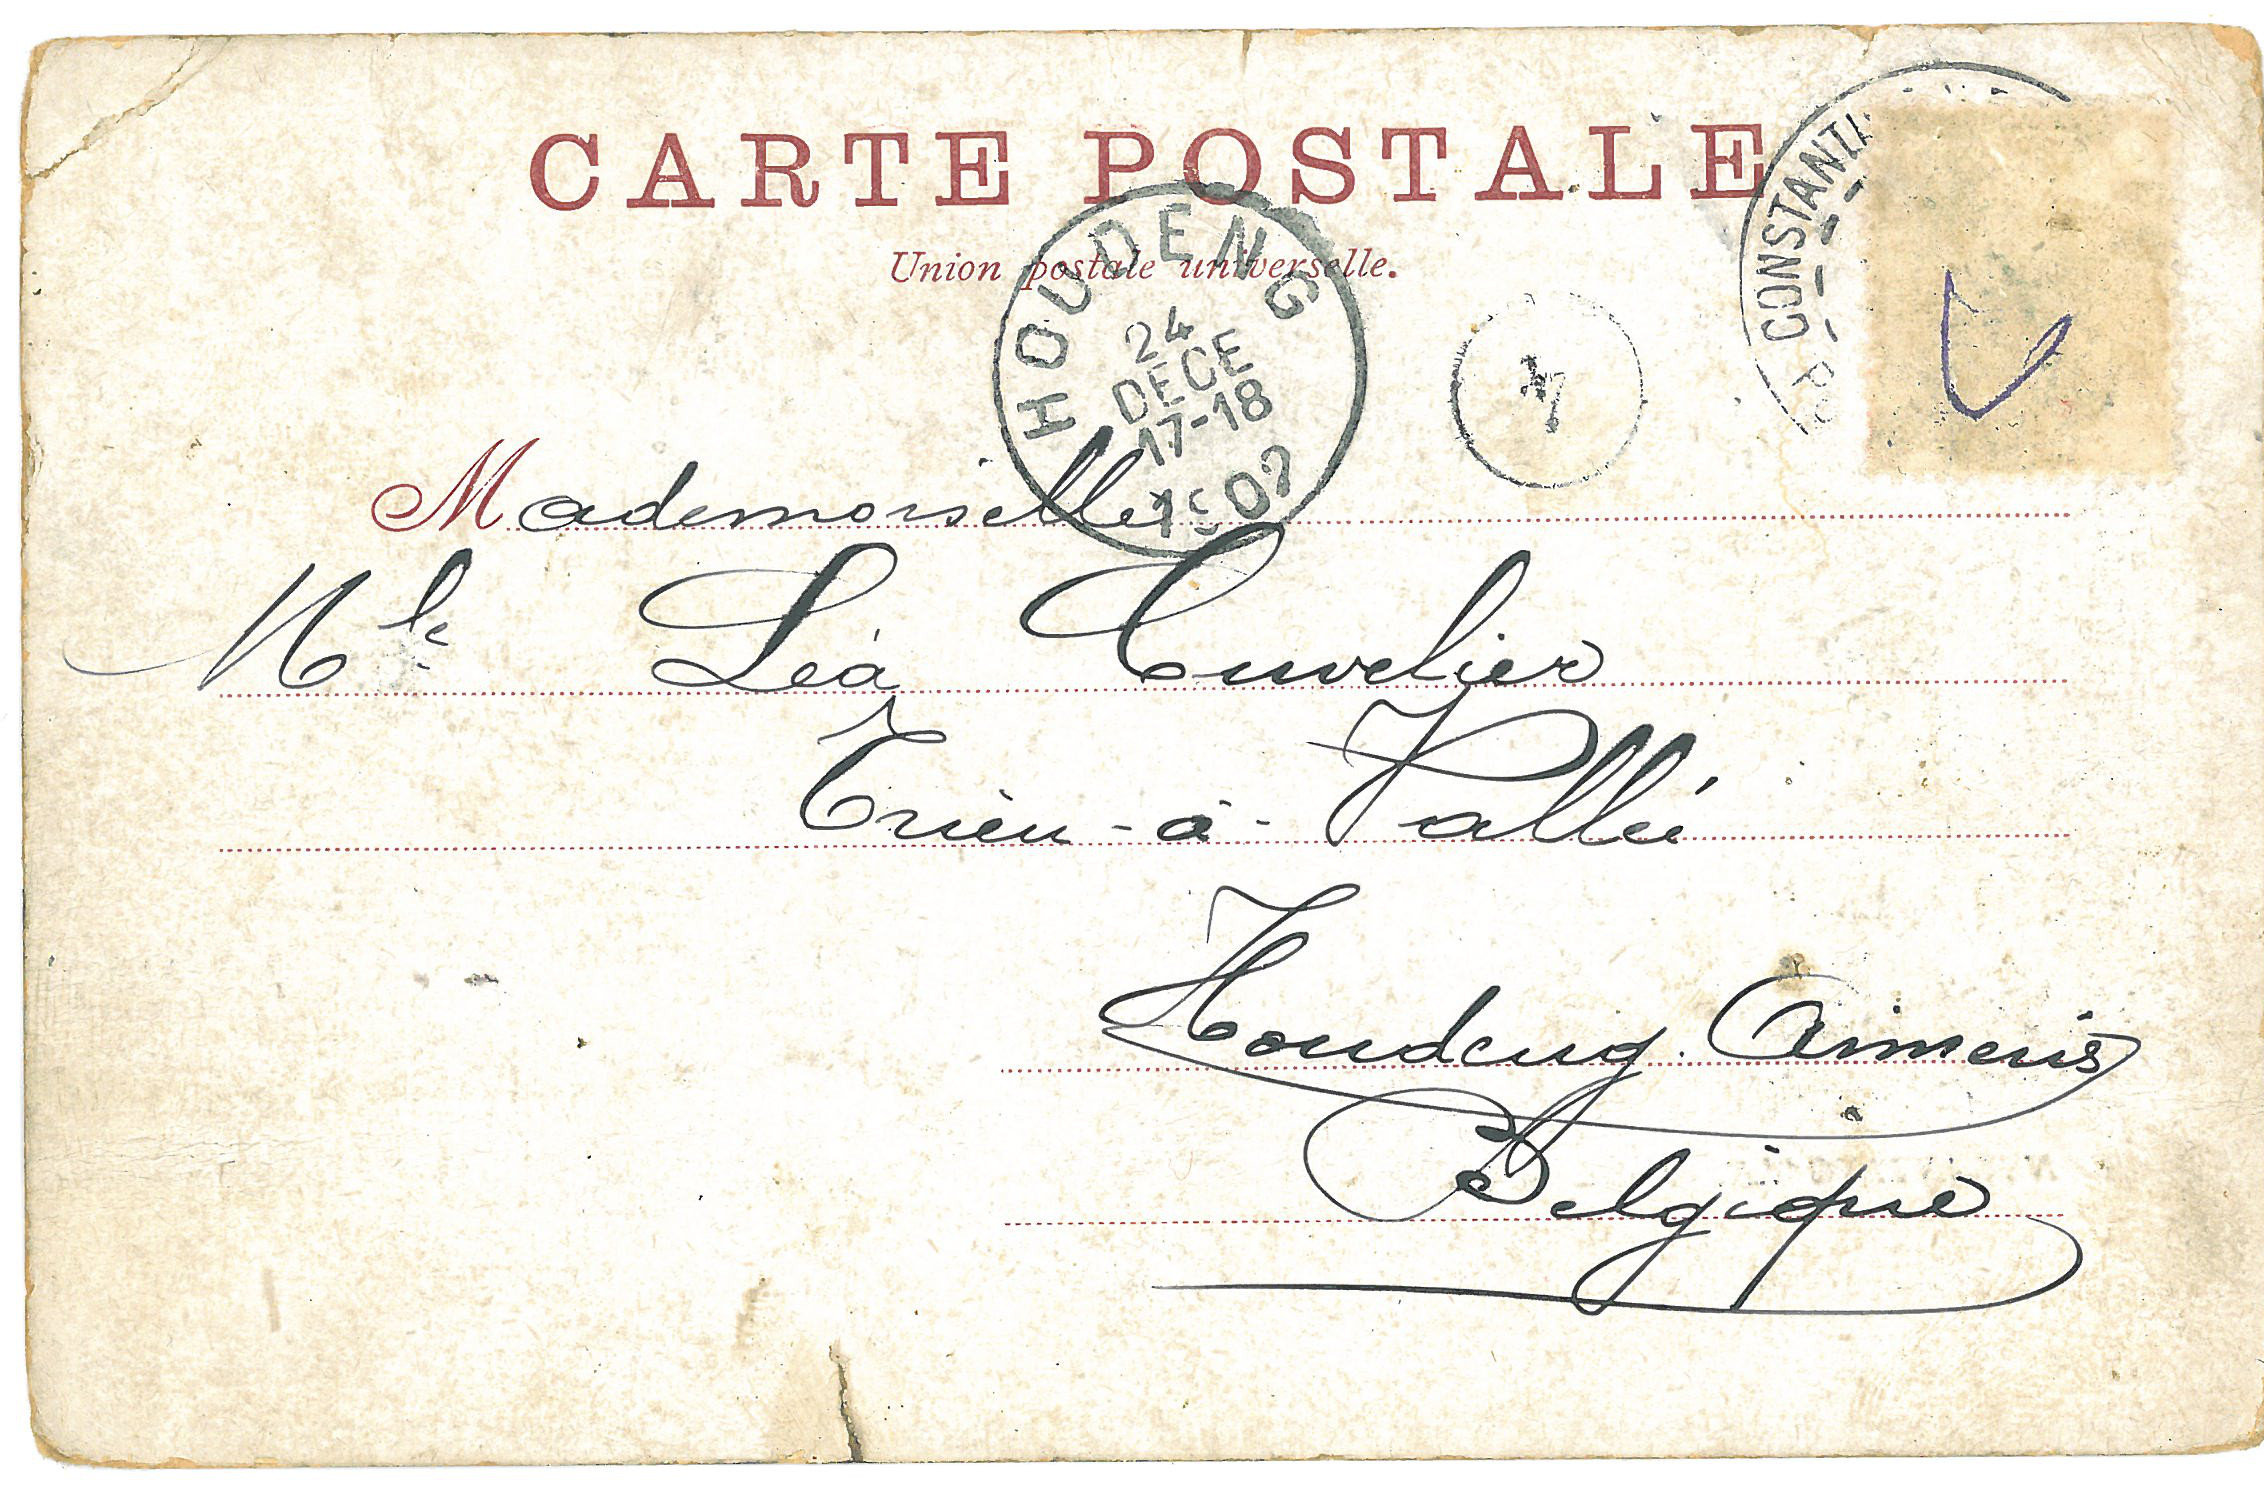 CARTE POSTALE
Union postale universelle.
CONSTANTI
HOUDENG
24
DECE
17-18
Mademoiselle
Mlle Léa Cuvelier
Trieu-à-Vallée
Houdeng Aimeries
Belgique